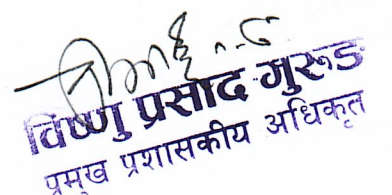 विष्णु प्रसाद गुरुङ
प्रमुख प्रशासकीय अधिकृत